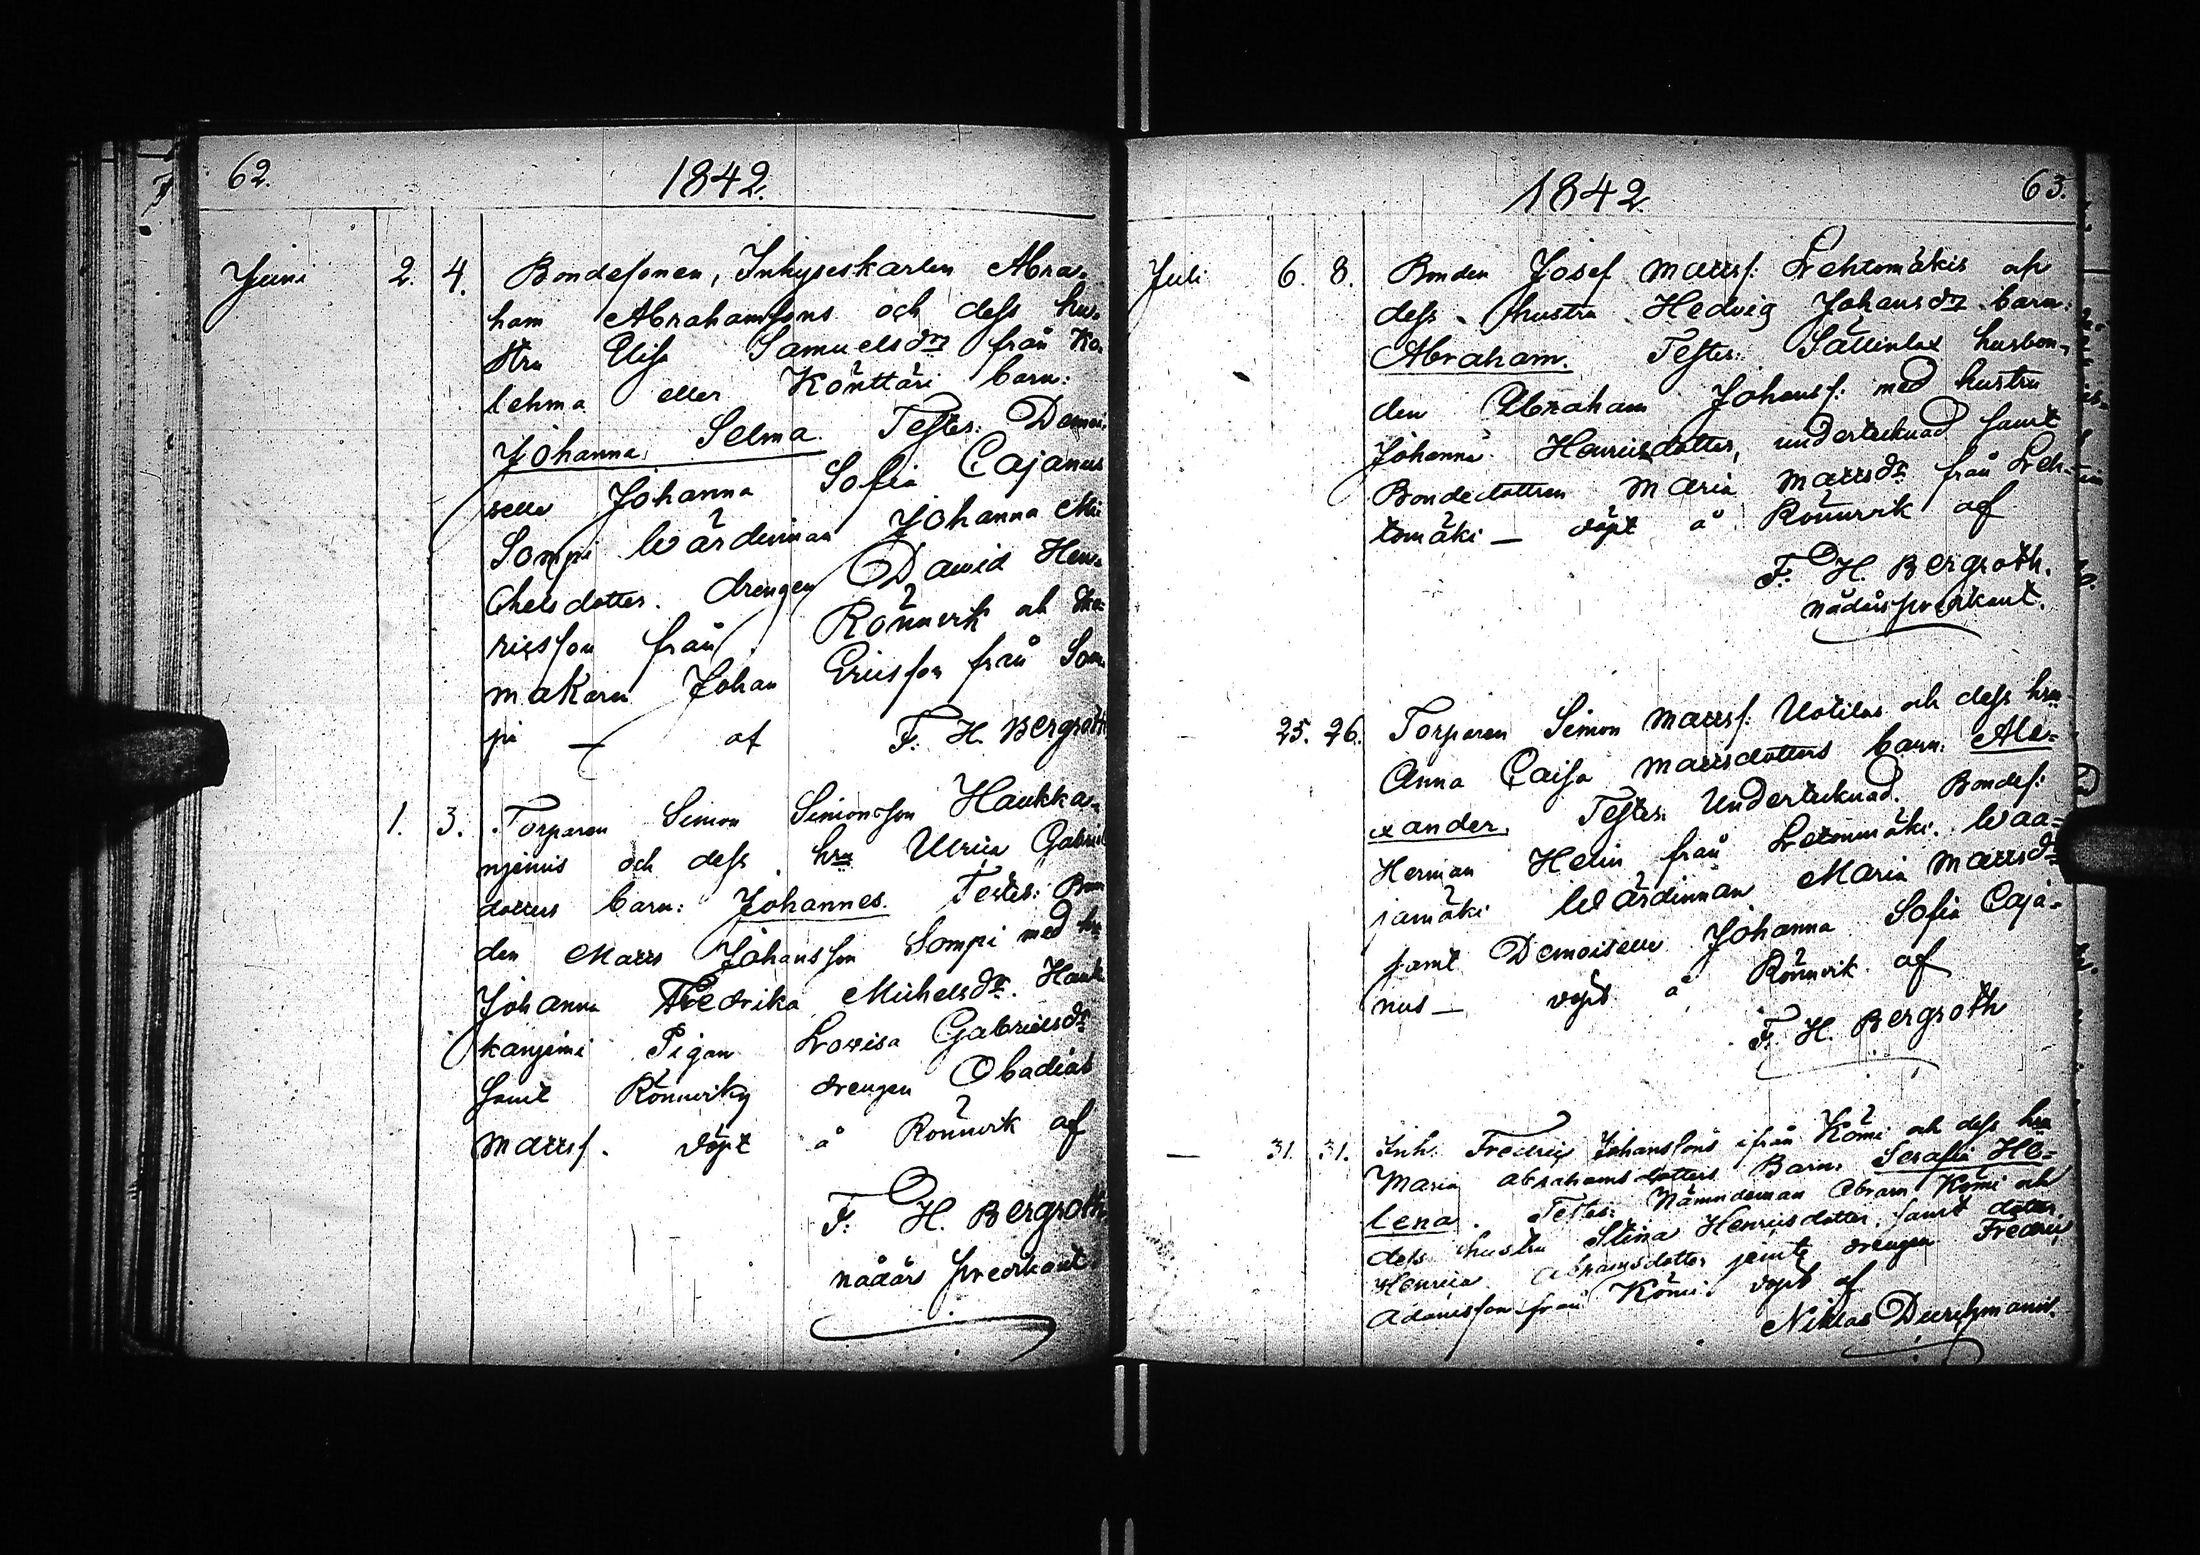 62.
1842.
Juni 2. 4. Bondesonen, Inhyseskarlen Abra-
ham Abrahamsons och dess hus-
tru Elisa Samuelsdrs från Ko-
lehma eller Könttäri barn:
Johanna Selma. Testes: Demoi-
selle Johanna Sofia Cajanus
Sompi Wärdinnan Johanna Mi-
chelsdotter. drengen Dawid Hen-
ricsson från Rönnvik och Sko-
makaren Johan Ericsson från Som-
pi — af F. H. Bergroth
1. 3. Torparen Simon Simonsson Haukka-
njemis och dess hru Ulrica Gabriels
dotters barn: Johannes. Testes: Bon
den Matts Johansson Sompi med hru
Johanna Fredrika Michelsdr. Hauk
kanjemi Pigan Lovisa Gabrielsdr
samt Rönnviks drengen Obadias
Mattsf. döpt å Rönnvik af
F. H. Bergroth
nådårs predikant
1842
63.
Juli 6. 8. Bonden Josef Mattsf: Lehtomäkis och
dess hustru Hedvig Johansdrs barn:
Abraham. Testes: Sällinlax husbon-
den Abraham Johansf: med hustru
Johanna Henricsdotter, undertecknad samt
Bondedottren Maria Mattsdr från Leh-
tomäki — döpt å Rönnvik af
F. H. Bergroth.
nådårspredikant.
25. 26. Torparen Simon Mattsf: Uotilas och dess hru
Anna Caisa Mattsdotters barn: Ale-
xander. Testes: Undertecknad. Bondef:
Herman Helin från Lehtomäki. Waa-
jamäki Wärdinnan Maria Mattsdr
samt Demoiselle Johanna Sofia Caja-
nus — döpt å Rönnvik af
F. H. Bergroth
— 31. 31. Inh. Fredric Johanssons ifrån Kömi och dess hru
Maria Abrahamsdotters Barn: Serafia He-
lena. Testes: Nämndeman Abram Kömi och
dess hustru Stina Henricsdotter, samt dotter
Henrica Abramsdotter jemte drengen Fredric
Adamsson från Kömi. döpt af
Niklas Durchman.